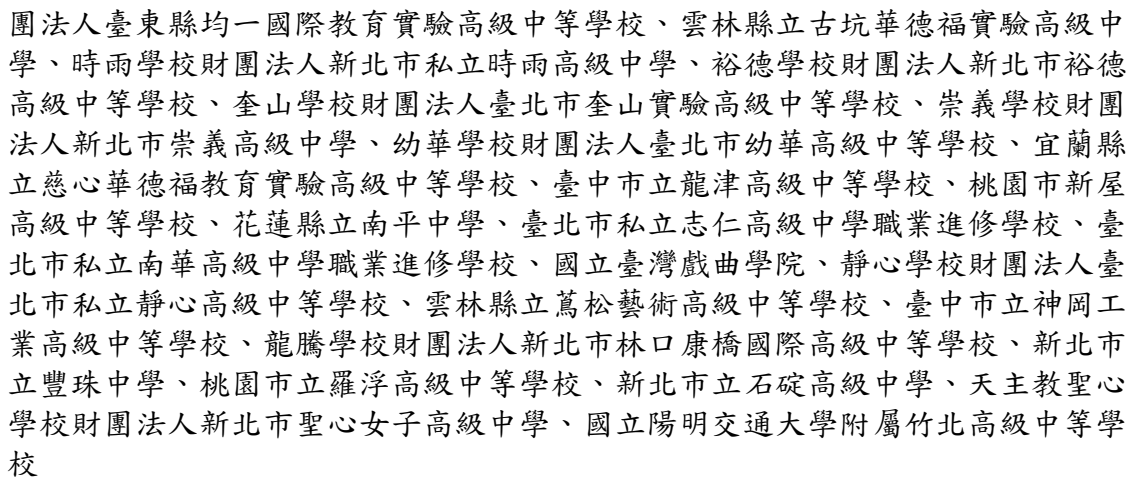 團法人臺東縣均一國際教育實驗高級中等學校、雲林縣立古坑華德福實驗高級中
學、時雨學校財團法人新北市私立時雨高級中學、裕德學校財團法人新北市裕德
高級中等學校、奎山學校財團法人臺北市奎山實驗高級中等學校、崇義學校財團
法人新北市崇義高級中學、幼華學校財團法人臺北市幼華高級中等學校、宜蘭縣
立慈心華德福教育實驗高級中等學校、臺中市立龍津高級中等學校、桃園市新屋
高級中等學校、花蓮縣立南平中學、臺北市私立志仁高級中學職業進修學校、臺
北市私立南華高級中學職業進修學校、國立臺灣戲曲學院、靜心學校財團法人臺
北市私立靜心高級中等學校、雲林縣立蔦松藝術高級中等學校、臺中市立神岡工
業高級中等學校、龍騰學校財團法人新北市林口康橋國際高級中等學校、新北市
立豐珠中學、桃園市立羅浮高級中等學校、新北市立石碇高級中學、天主教聖心
學校財團法人新北市聖心女子高級中學、國立陽明交通大學附屬竹北高級中等學
校